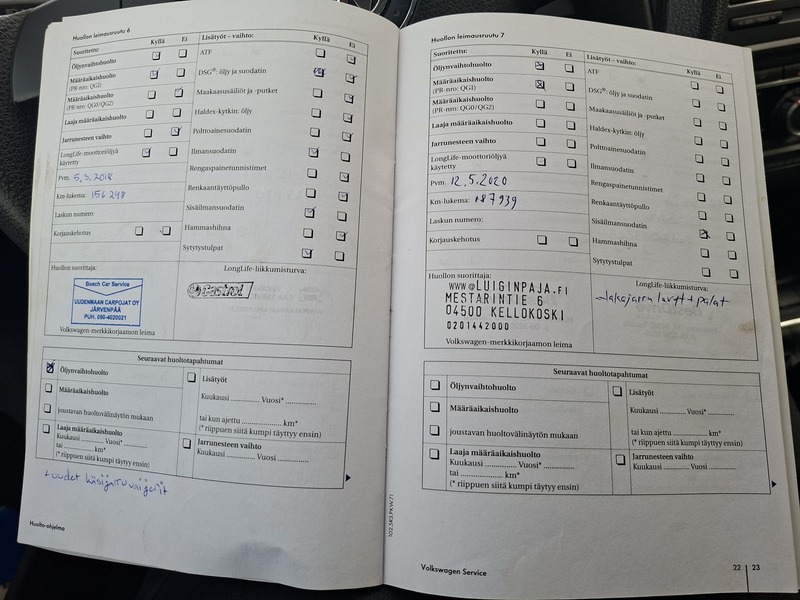 Huollon leimausruutu 6
Suoritettu: Kyllä Ei
Öljynvaihtohuolto
Määräaikaishuolto
(PR-nro: QG1)
Määräaikaishuolto
(PR-nro: QG0/QG2)
Laaja määräaikaishuolto
Jarrunesteen vaihto
LongLife-moottoriöljyä
käytetty
Pvm. 5.3.2018
Km-lukema: 156 248
Laskun numero:
Korjauskehotus
Lisätyöt - vaihto: Kyllä Ei
ATF
DSG®: öljy ja suodatin
Maakaasusäiliöt ja -putket
Haldex-kytkin: öljy
Polttoainesuodatin
Ilmansuodatin
Rengaspainetunnistimet
Renkaantäyttöpullo
Sisäilmansuodatin
Hammashihna
Sytytystulpat
Huollon suorittaja:
Bosch Car Service
UUDENMAAN CARPOJAT OY
JÄRVENPÄÄ
PUH. 050-4020021
Volkswagen-merkkikorjaamon leima
LongLife-liikkumisturva:
Castrol
Seuraavat huoltotapahtumat
Öljynvaihtohuolto
Määräaikaishuolto
joustavan huoltovälinäytön mukaan
Laaja määräaikaishuolto
Kuukausi .......... Vuosi* ..............
tai .......................... km*
(* riippuen siitä kumpi täytyy ensin)
Lisätyöt
Kuukausi ............ Vuosi* ..............
tai kun ajettu .................. km*
(* riippuen siitä kumpi täyttyy ensin)
Jarrunesteen vaihto
Kuukausi ............ Vuosi ..............
+ uudet käsijarruvaijerit
Huolto-ohjelma
Huollon leimausruutu 7
Suoritettu: Kyllä Ei
Öljynvaihtohuolto
Määräaikaishuolto
(PR-nro: QG1)
Määräaikaishuolto
(PR-nro: QG0/QG2)
Laaja määräaikaishuolto
Jarrunesteen vaihto
LongLife-moottoriöljyä
käytetty
Pvm. 12.5.2020
Km-lukema: 187939
Laskun numero:
Korjauskehotus
Lisätyöt - vaihto: Kyllä Ei
ATF
DSG®: öljy ja suodatin
Maakaasusäiliöt ja -putket
Haldex-kytkin: öljy
Polttoainesuodatin
Ilmansuodatin
Rengaspainetunnistimet
Renkaantäyttöpullo
Sisäilmansuodatin
Hammashihna
Sytytystulpat
Huollon suorittaja:
WWW@LUIGINPAJA.FI
MESTARINTIE 6
04500 KELLOKOSKI
0201442000
Volkswagen-merkkikorjaamon leima
LongLife-liikkumisturva:
+ palat
Seuraavat huoltotapahtumat
Öljynvaihtohuolto
Määräaikaishuolto
joustavan huoltovälinäytön mukaan
Laaja määräaikaishuolto
Kuukausi ................ Vuosi* ..............
tai .......................... km*
(* riippuen siitä kumpi täytyy ensin)
Lisätyöt
Kuukausi ............ Vuosi* ..............
tai kun ajettu .................. km*
(* riippuen siitä kumpi täyttyy ensin)
Jarrunesteen vaihto
Kuukausi ............ Vuosi ..............
Volkswagen Service
22 23